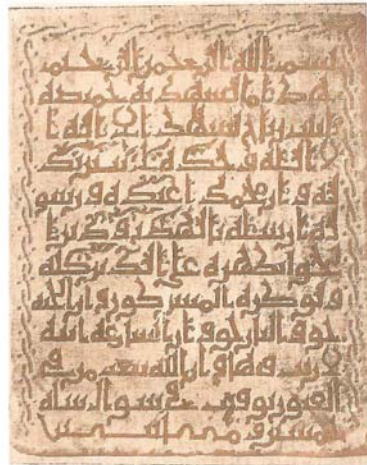 بسم الله الرحمن الرحيم
هذا ما تشهد به حميده
تشهد ان لا اله ا
لا الله وحده لا شريك
له وان محمدا عبده ورسو
له ارسله بالهدى ودين ا
لحق ليظهره على الدين كله
ولو كره المشركون وان الجنة
حق والنار حق وان الساعة اتية
لا ريب فيها وان الله يبعث من في
القبور توفيت في شوال سنة